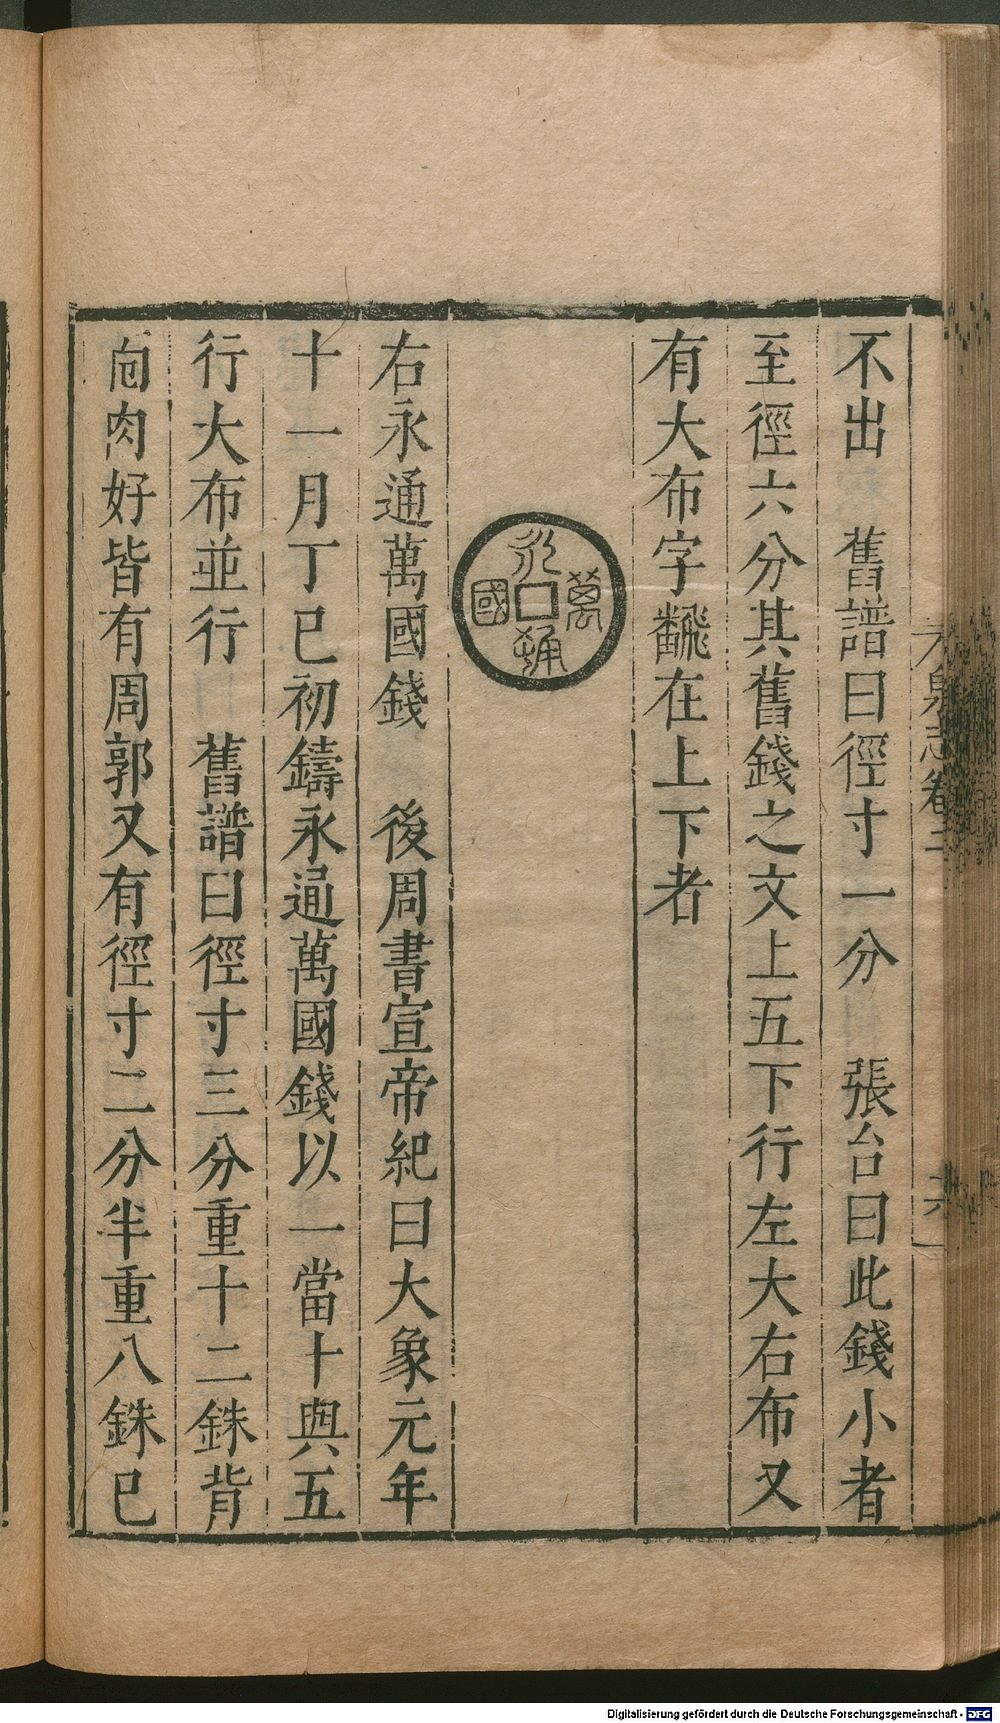 不出　舊譜曰徑寸一分　張台曰此錢小者
至徑六分其舊錢之文上五下行左大右布又
有大布字飜在上下者
永通萬國
右永通萬國錢　後周書宣帝紀曰大象元年
十一月丁巳初鑄永通萬國錢以一當十與五
行大布並行　舊譜曰徑寸三分重十二銖背
面肉好皆有周郭又有徑寸二分半重八銖巳
泉志卷二
六
Digitalisierung gefördert durch die Deutsche Forschungsgemeinschaft - DFG